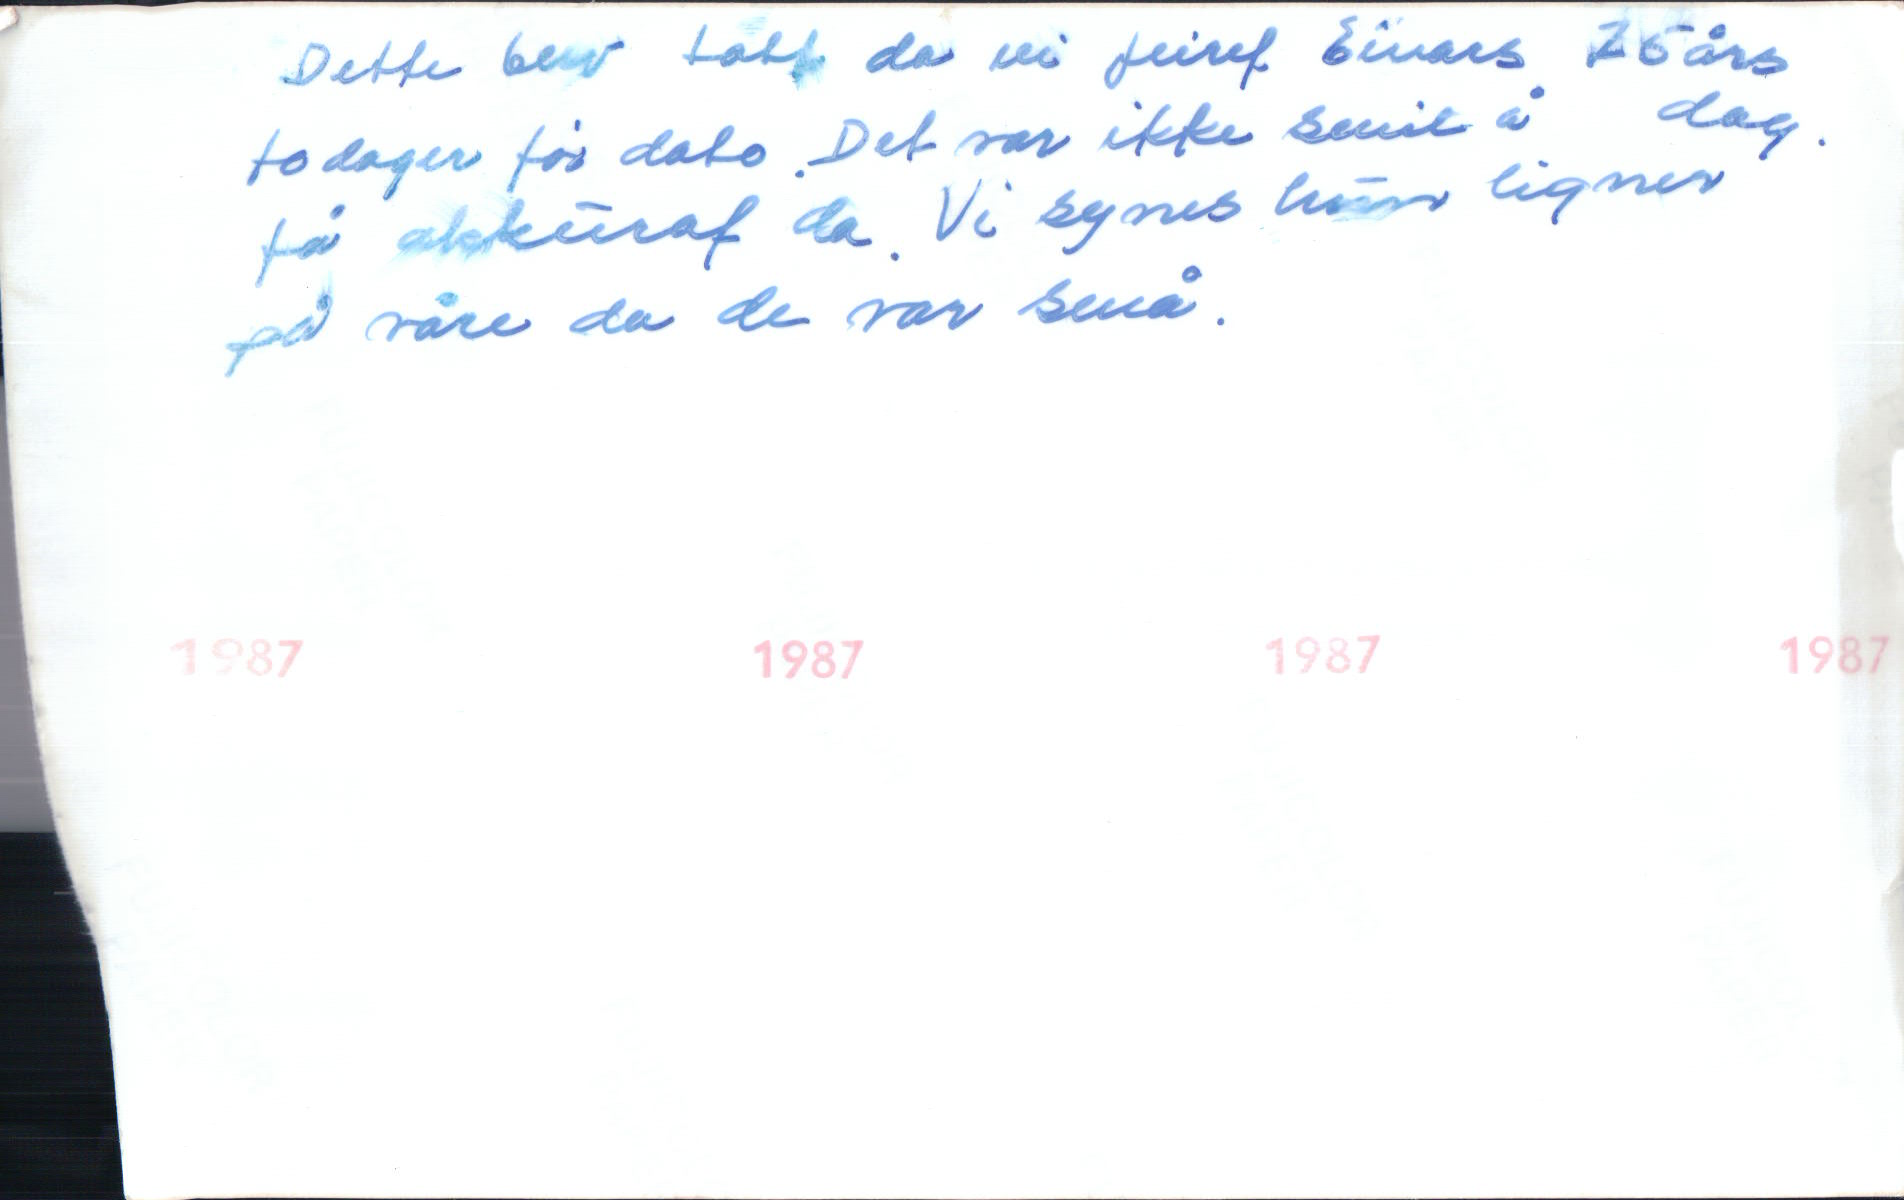 Dette ble tatt da vi feiret Einars 75 års
to dager før dato. Det var ikke smil å dag.
få akkurat da. Vi synes hun ligner
på våre da de var små.
1987 1987 1987 1987
FUJICOLOR
PAPER